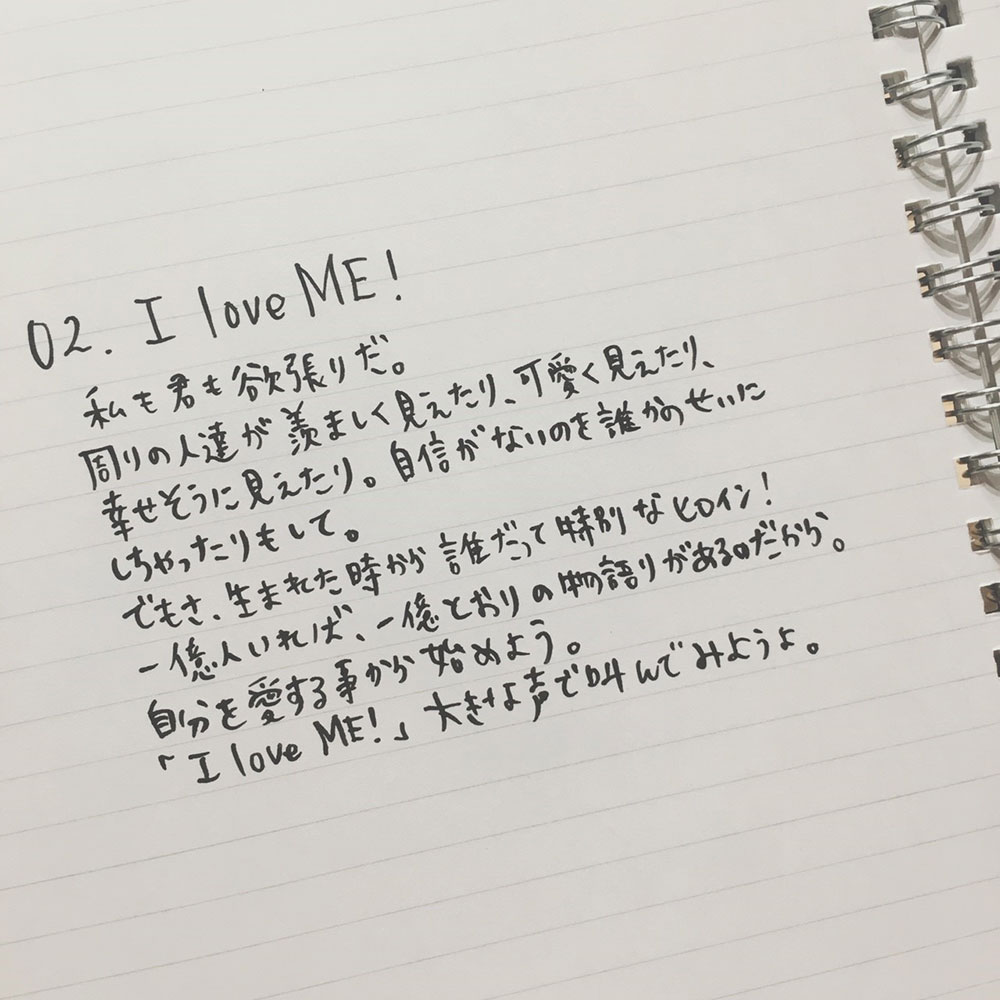 02. I love ME!
私も君も欲張りだ。
周りの人達が羨ましく見えたり、可愛く見えたり、
幸せそうに見えたり。自信がないのを誰かのせいに
しちゃったりもして。
でもさ、生まれた時から誰だって特別なヒロイン!
一億人いれば、一億とおりの物語りがあるのだから。
自分を愛する事から始めよう。
「I love ME!」大きな声で叫んでみようよ。